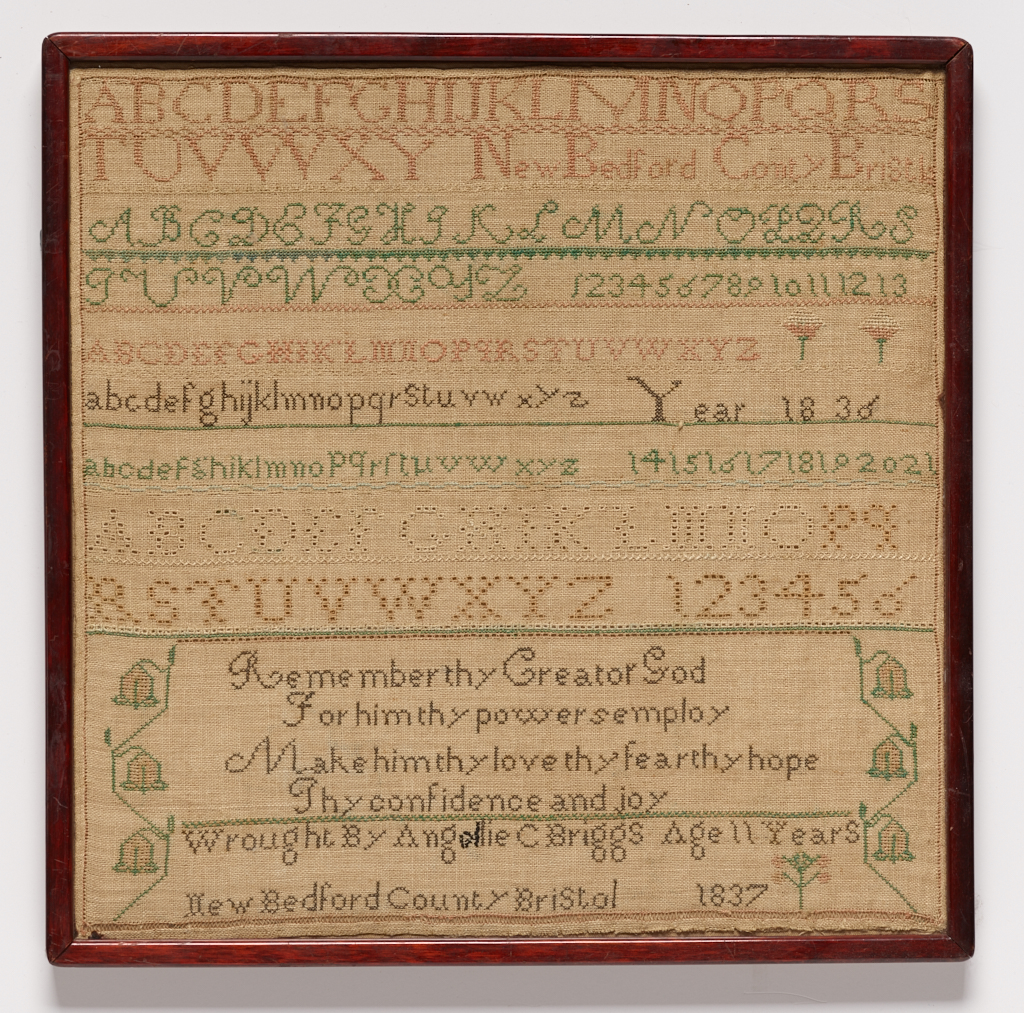 ABCDEFGHIJKLMNOPQRS
TUVWXY New Bedford Conty Bristl
ABCDEFGHIKLMNOPQRS
TUVWXYZ 12345678910111213
ABCDEFGHIKLMNOPqRSTUVWXYZ
abcdefghijklmnopqrstuvwxyz Year 1836
abcdefghiklmnopqrſtuvwxyz 1415161718192021
ABCDEFGHIKLMNOPq
RSTUVWXYZ 123456
Rememberthy Creator God
Forhimthypowersemploy
Makehimthylovethyfearthyhope
Thyconfidence and joy
Wrought By C Briggs Age 11 YearS
New Bedford County BriStol 1837